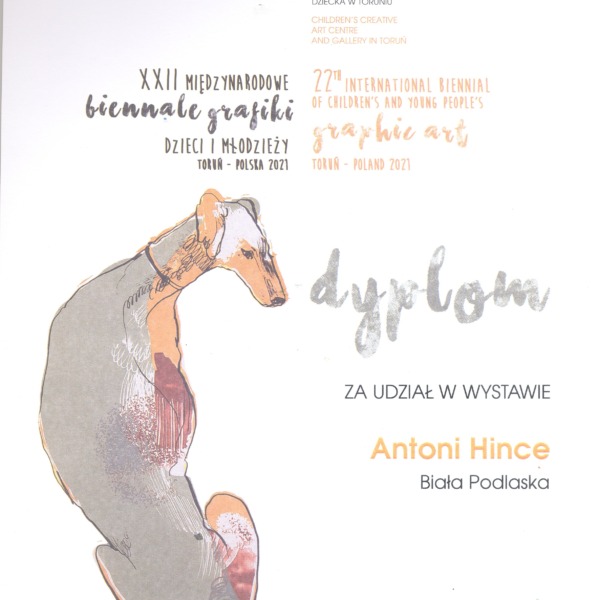 DZIECKA W TORUNIU
CHILDREN'S CREATIVE
ART CENTRE
AND GALLERY IN TORUŃ
XXII MIĘDZYNARODOWE
biennale grafiki
DZIECI I MŁODZIEŻY
TORUŃ - POLSKA 2021
22TH INTERNATIONAL BIENNIAL
OF CHILDREN'S AND YOUNG PEOPLE'S
graphic art
TORUŃ - POLAND 2021
dyplom
ZA UDZIAŁ W WYSTAWIE
Antoni Hince
Biała Podlaska